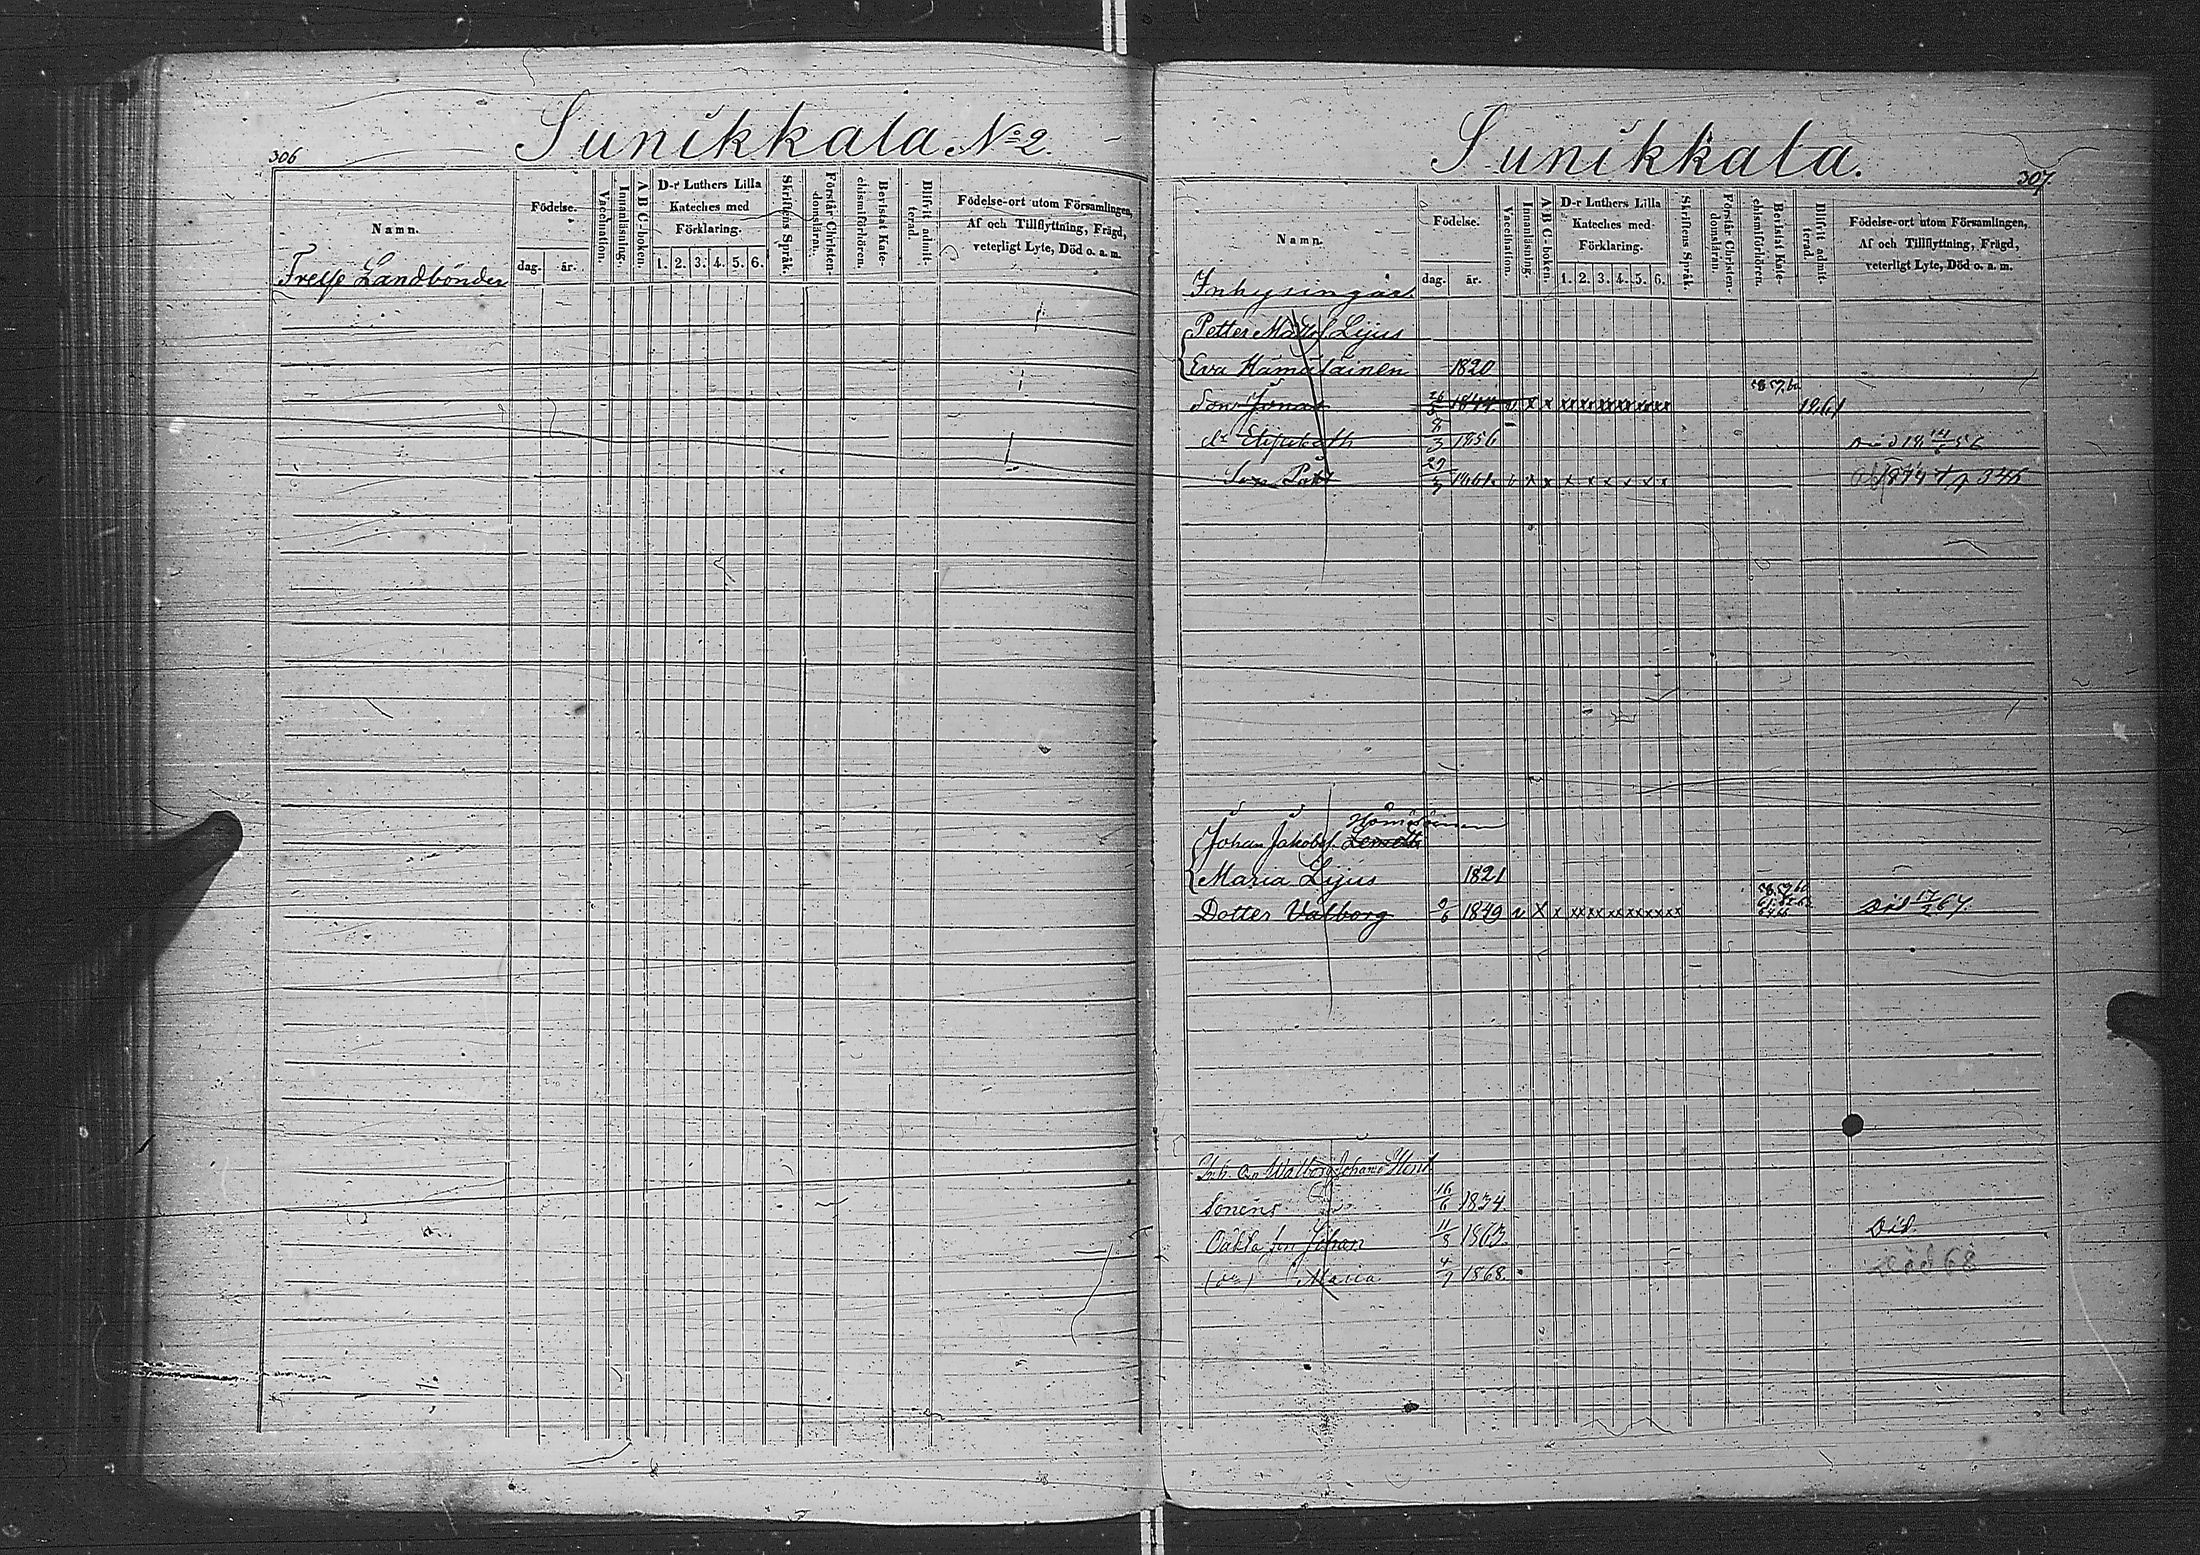 306
Sunikkala No 2.
Namn.
Födelse.
dag. år.
Vaccination.
Innanläsning.
A B C-boken.
D-r Luthers Lilla
Kateches med
Förklaring.
1. 2. 3. 4. 5. 6.
Skriftens Språk.
Förstår Christen-
domsläran.
Bevistat Kate-
chismiförhören.
Blifvit admit-
terad.
Födelse-ort utom Församlingen,
Af och Tillflyttning, Frägd,
veterligt Lyte, Död o. a. m.
Frelse Landbönder
Sunikkala.
307.
Namn.
Födelse.
dag. år.
Vaccination.
Innanläsning.
A B C-boken.
D-r Luthers Lilla
Kateches med
Förklaring.
1. 2. 3. 4. 5. 6.
Skriftens Språk.
Förstår Christen-
domsläran.
Bevistat Kate-
chismiförhören.
Blifvit admit-
terad.
Födelse-ort utom Församlingen,
Af och Tillflyttning, Frägd,
veterligt Lyte, Död o. a. m.
Inhysingar.
Petter Lijus
Eva Hämäläinen 1820
Son Jonas 1844 v x x 1861
dr Elisabeth 8/3 1856
Son 1861 v x x x x x x x x
Johan Jakobs.
Maria Lijus 1821
Dotter Valborg 9/6 1849 v x x xx xx xx xx xx xx Död 67.
Sonens 16/6 1834
Johan 11/8 1863. Död.
Maria 4/7 1868. Död 68